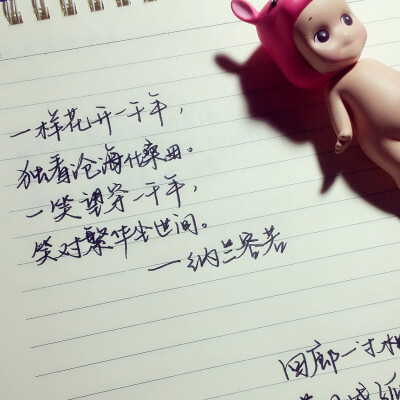 一样花开一千年，
独看沧海化桑田。
一笑望穿一千年，
笑对繁华尘世间。
——纳兰容若
回廊一寸相